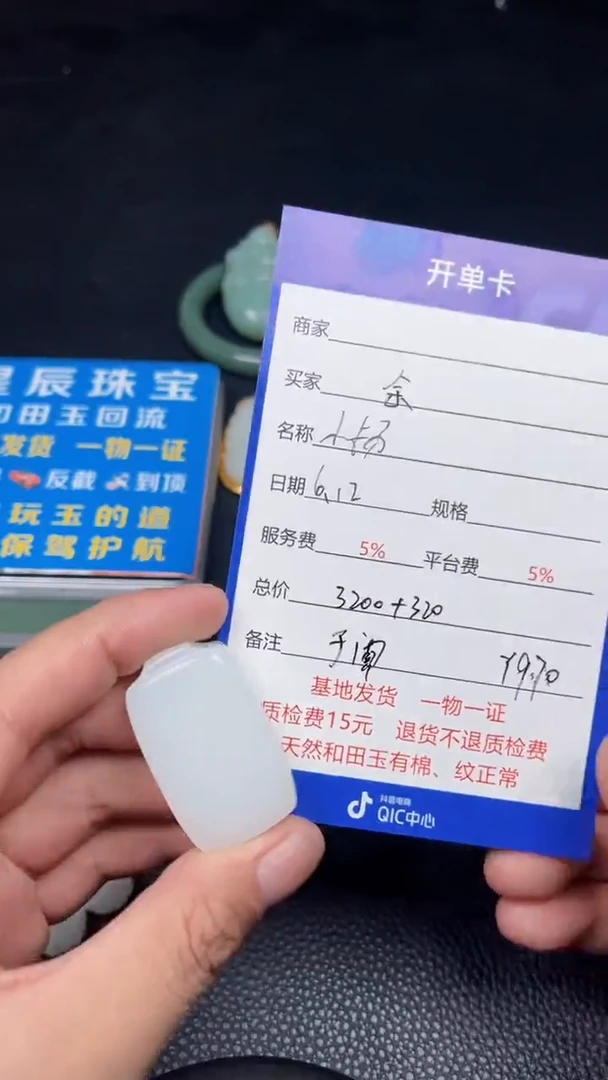 开单卡
商家
买家 余
名称
日期 6.12 规格
服务费 5% 平台费 5%
总价 3200+320
备注 于阗 19.70
基地发货 一物一证
质检费15元 退货不退质检费
天然和田玉有棉、纹正常
抖音电商
QIC中心
星辰珠宝
和田玉回流
发货 一物一证
反截 到顶
玩玉的道
保驾护航